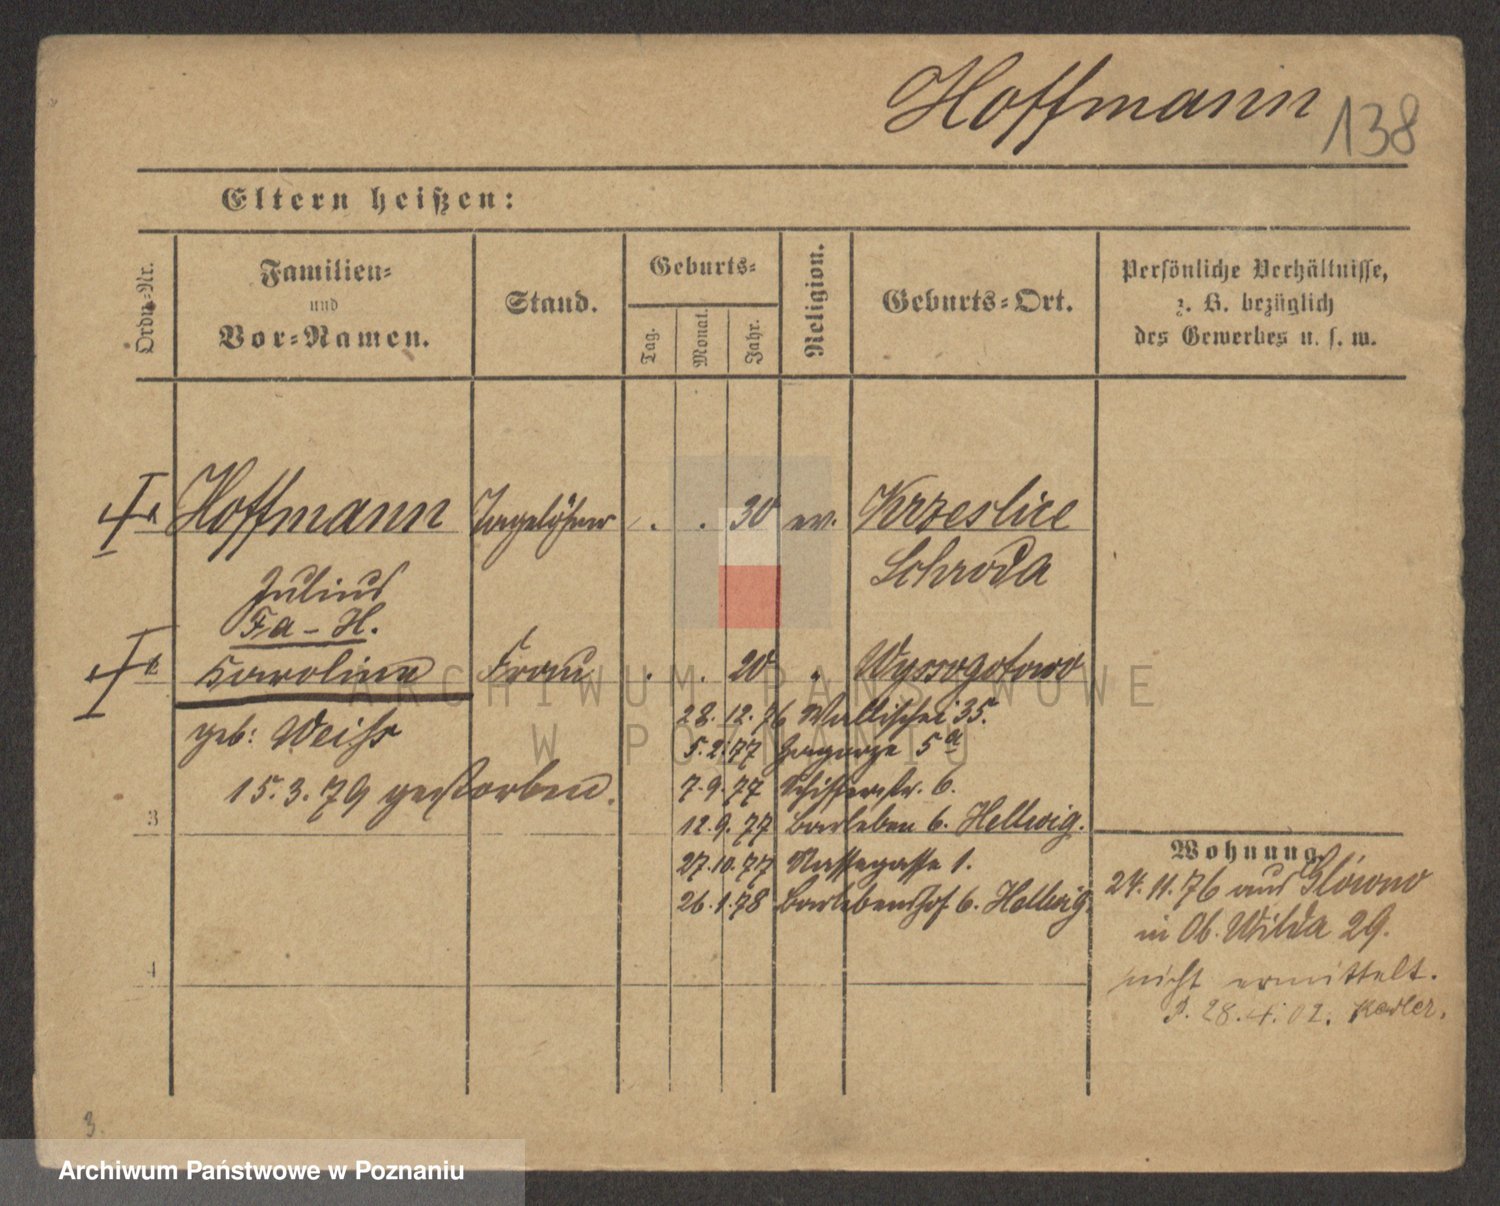 Hoffmann 138
Eltern heißen:
Ordn=Nr.
Familien=
und
Vor=Namen.
Stand.
Geburts=
Tag.
Monat.
Jahr.
Religion.
Geburts=Ort.
Persönliche Verhältnisse,
z. B. bezüglich
des Gewerbes u. s. w.
Hoffmann Tagelöhner . . 30 ev. Krzeslice
Schroda
Julius
Fa - H.
Karoline Frau . . 20 " Wyssogotowo
geb: Weiss
15.3.79 gestorben.
28. 12. 76 Wallischei 35.
5. 2. 77 Zagorze 5a
7. 9. 77 Schifferstr. 6.
12. 9. 77 Barleben 6. Hellwig.
27. 10. 77 Nassegasse 1.
26. 1. 78 Barlebenshof 6. Hellwig.
3
4
Wohnung
24. 11. 76 aus Glówno
in Ob. Wilda 29.
nicht ermittelt.
P. 28. 4. 02.
3.
ARCHIWUM PAŃSTWOWE
W POZNANIU
Archiwum Państwowe w Poznaniu